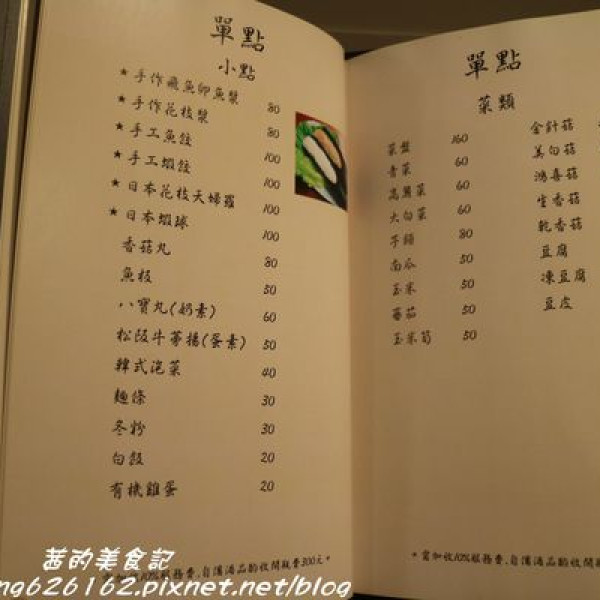 單點
小點
★手作飛魚卵魚漿 80
★手作花枝漿 80
★手工魚餃 100
★手工蝦餃 100
★日本花枝天婦羅 100
★日本蝦球 100
香菇丸 80
魚板 50
八寶丸(奶素) 60
松阪牛蒡捲(蛋素) 50
韓式泡菜 40
麵條 30
冬粉 30
白飯 20
有機雞蛋 20
單點
菜類
菜盤 160
青菜 60
高麗菜 60
大白菜 60
芋頭 80
南瓜 50
玉米 50
蕃茄 50
玉米筍 50
金針菇
美白菇
鴻喜菇
生香菇
乾香菇
豆腐
凍豆腐
豆皮
10%服務費,自備酒品酌收開瓶費300元*
*需加收10%服務費,自備酒品酌收開瓶費
茜的美食記
ng626162.pixnet.net/blog